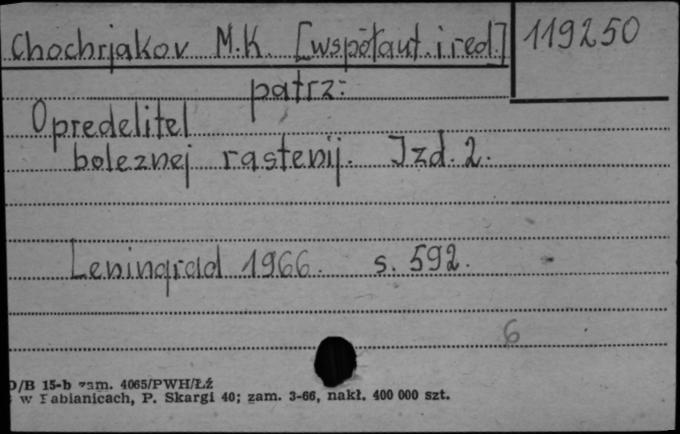 Chochrjakov M.K. [współaut. i red.] 119250
patrz:
Opredelitel
boleznej rastenij. Izd. 2.
Leningrad 1966. s. 592.
6
D/B 15-b zam. 4065/PWH/Łź
w Pabianicach, P. Skargi 40; zam. 3-66, nakł. 400 000 szt.